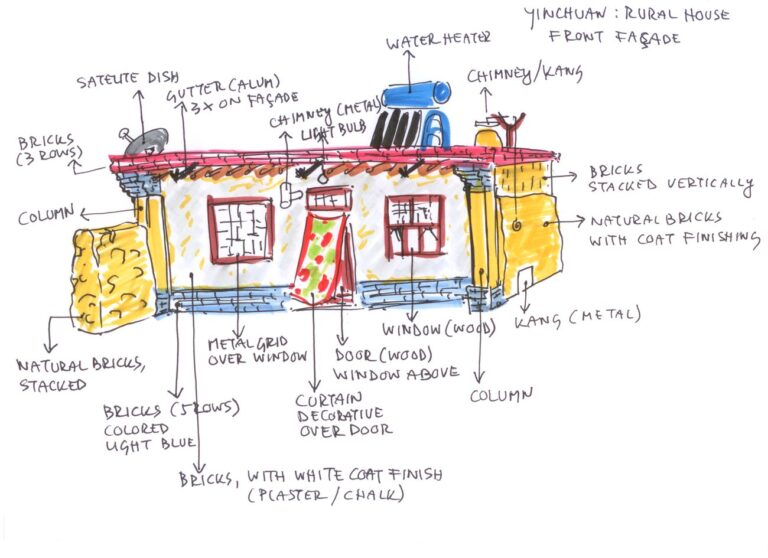 YINCHUAN : RURAL HOUSE
FRONT FAÇADE
WATER HEATER
CHIMNEY/KANG
SATELITE DISH
GUTTER (ALUM)
3X ON FAÇADE
CHIMNEY (METAL)
LIGHT BULB
BRICKS
(3 ROWS)
BRICKS
STACKED VERTICALLY
COLUMN
NATURAL BRICKS
WITH COAT FINISHING
KANG (METAL)
NATURAL BRICKS,
STACKED
METAL GRID
OVER WINDOW
DOOR (WOOD)
WINDOW ABOVE
WINDOW (WOOD)
COLUMN
BRICKS (5 ROWS)
COLORED
LIGHT BLUE
CURTAIN
DECORATIVE
OVER DOOR
BRICKS, WITH WHITE COAT FINISH
(PLASTER / CHALK)